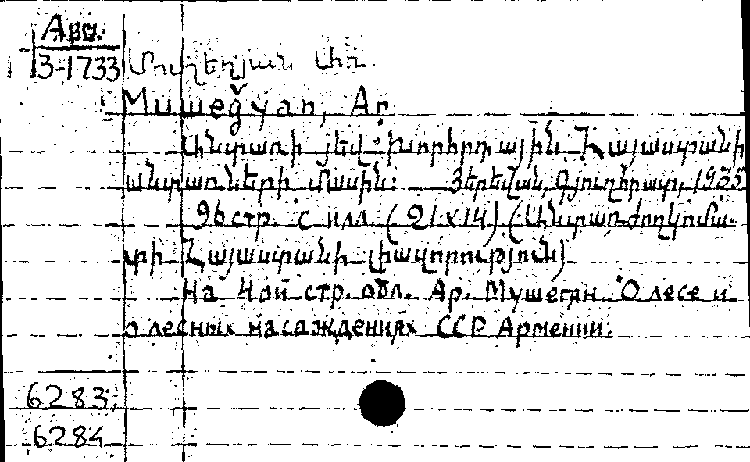 Арм.
3-1733 Մուշեղյան Ար.
Mušeğyan, Ar
Անտառի յեվ Խորհրդային Հայաստանի
անտառների մասին: Յերեվան, Գյուղհրատ, 1935
96 стр. с илл. (21x14) (Անտառժողկոմա-
տի Հայաստանի լիազորություն)
На 4ой стр. обл. Ар. Мушегян. О лесе и
о лесных насаждениях ССР Армении.
6283,
6284